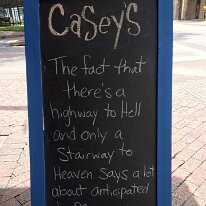 CaSeY'S
The fact that
there's a
highway to Hell
and only a
Stairway to
Heaven Says a lot
about anticipated